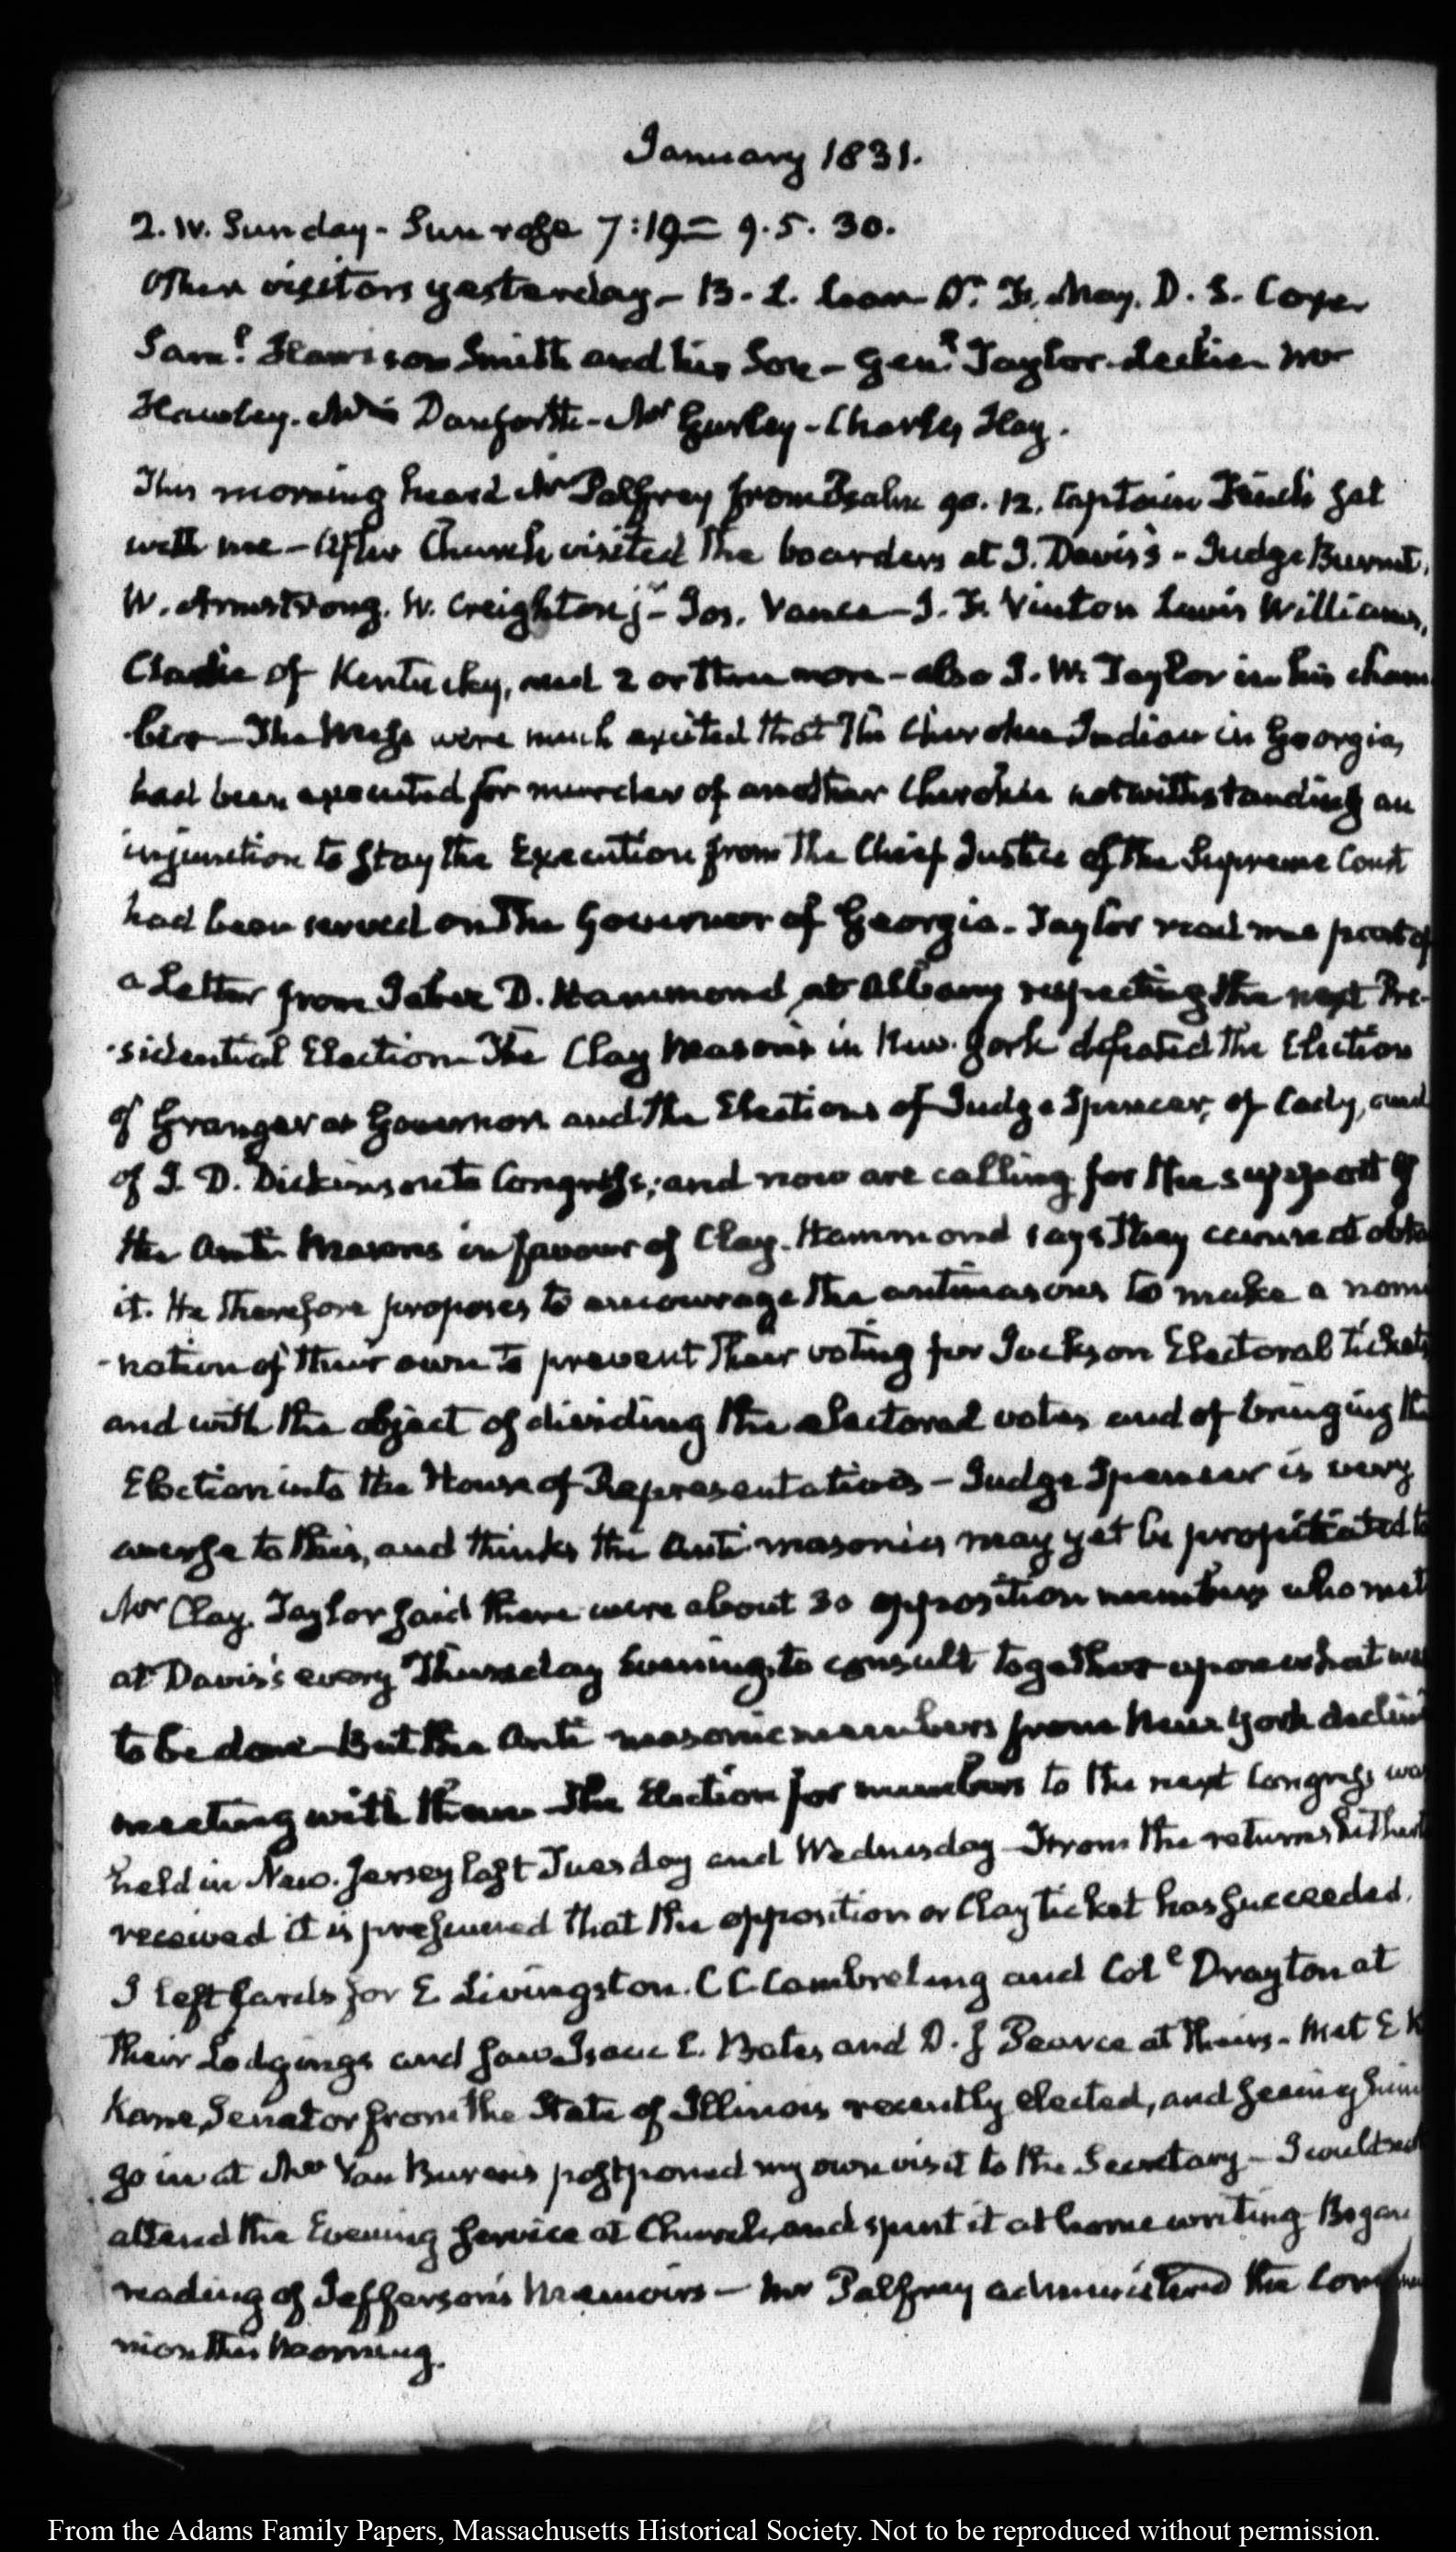 January 1831.
2. IV. Sunday - Sun rose 7:19 = 9.5. 30.
Other visitors yesterday - B. L. Lear Dr. F. May. D. S.
Saml. Harrison Smith and his Son - Genl. Taylor - Leckie Mr
Hawley - Danforth - Mr Gurley - Charles Hay.
This morning heard Mr Palfrey from Psalm 90. 12. Captain Finch sat
with me - After Church visited the boarders at J. Davis's - Judge Burnet,
W. Armstrong. W. Creighton jr - Jos. Vance - S. F. Vinton Lewis Williams,
of Kentucky, and 2 or three more - also J. W. Taylor in his cham
ber - The Mess were much excited that the Cherokee Indian in Georgia,
had been executed for murder of another Cherokee notwithstanding an
injunction to stay the Execution from the Chief Justice of the Supreme Court
had been served on the Governor of Georgia - Taylor read me part of
a Letter from Jabez D. Hammond at Albany respecting the next Pre-
-sidential Election - The Clay Masons in New-York defeated the Election
of Granger as Governor and the Elections of Judge Spencer, of Cady, and
of J. D. Dickinson to Congress; and now are calling for the support of
the Anti Masons in favour of Clay - Hammond says they cannot obta
it. He therefore proposes to encourage the antimasons to make a nomi
-nation of their own to prevent their voting for Jackson Electoral tickets
and with the object of dividing the electoral votes and of bringing the
Election into the House of Representatives - Judge Spencer is very
averse to this, and thinks the Anti masonics may yet be propitiated to
Mr Clay. Taylor said there were about 30 opposition members who met
at Davis's every Thursday Evening to consult together upon what was
to be done - But the Anti masonic members from New York declin
meeting with them - The Election for members to the next Congress was
held in New-Jersey last Tuesday and Wednesday - From the returns hithert
received it is presumed that the opposition or Clay ticket has succeeded.
I left cards for E Livingston. C C. Cambreleng and Col. Drayton at
their Lodgings and saw Isaac C. Bates and D. J Pearce at theirs - Met E K
Kane, Senator from the State of Illinois recently elected, and seeing him
go in at Mr Van Buren's postponed my own visit to the Secretary - I could not
attend the Evening service at Church, and spent it at home writing - Began
reading of Jefferson's Memoirs - Mr Palfrey administered the Commu
nion this Morning.
From the Adams Family Papers, Massachusetts Historical Society. Not to be reproduced without permission.